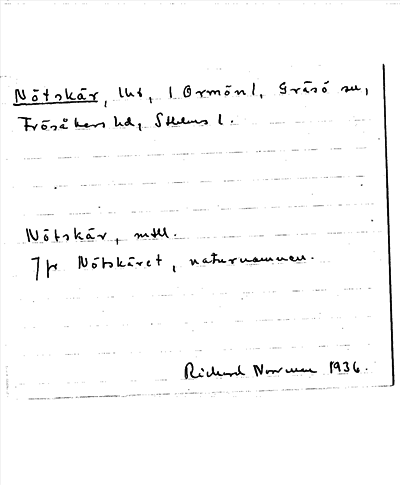 Nötskär, lht, i Ormön l, Gräsö sn,
Frösåkers hd, Sthlms l.
Nötskär, mtll.
Jfr Nötskäret, naturnamnen.
Richard Norrman 1936.